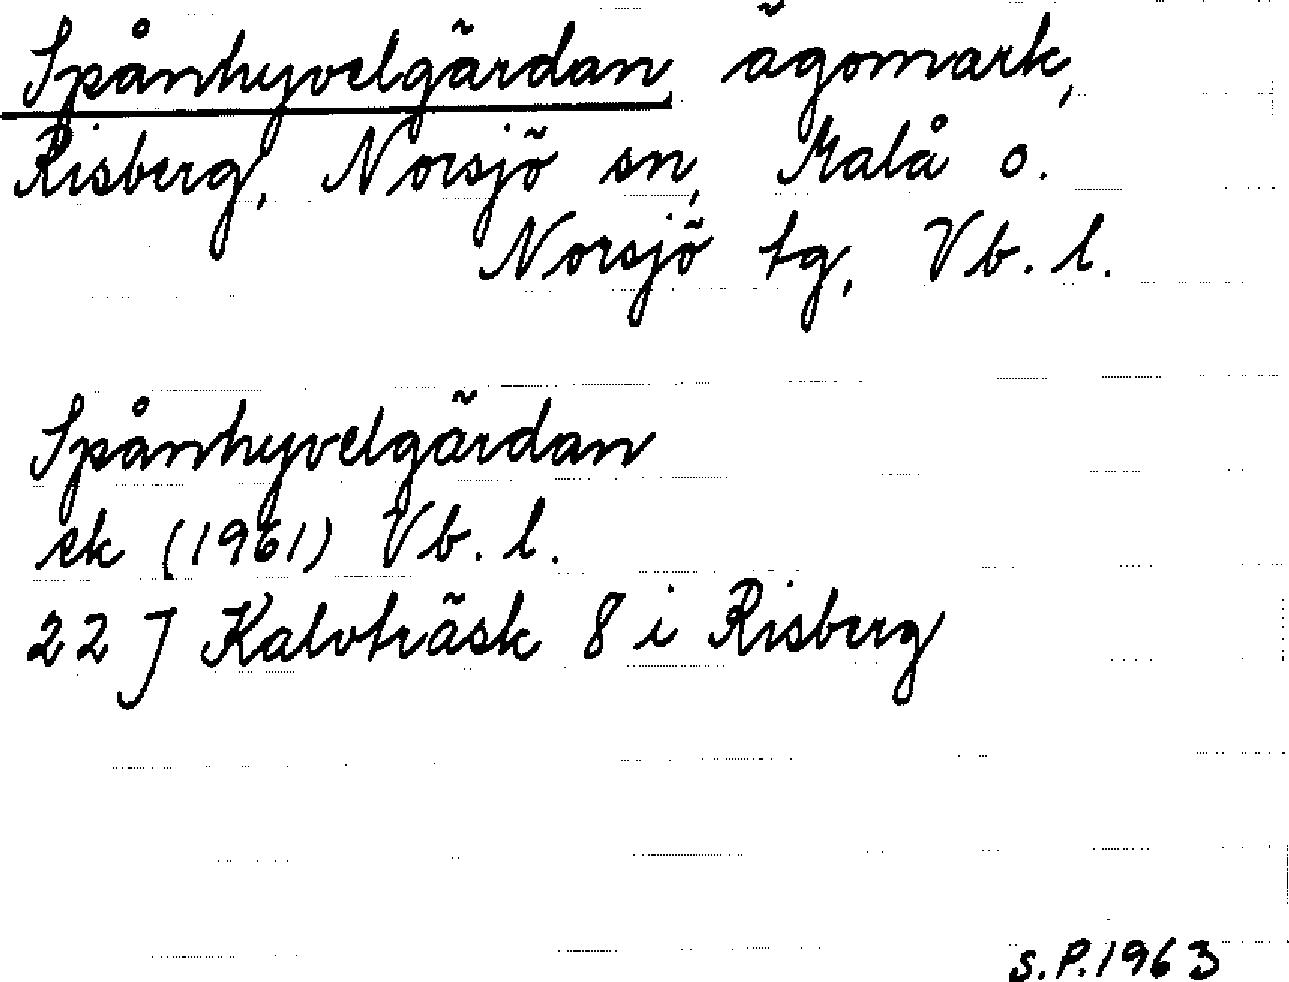 Spånhyvelgärdan, ägomark,
Risberg, Norsjö sn, Malå o.
Norsjö tg, Vb. l.
Spånhyvelgärdan
ek (1961) Vb. l.
22 J Kalvträsk 8 i Risberg
S.P. 1963